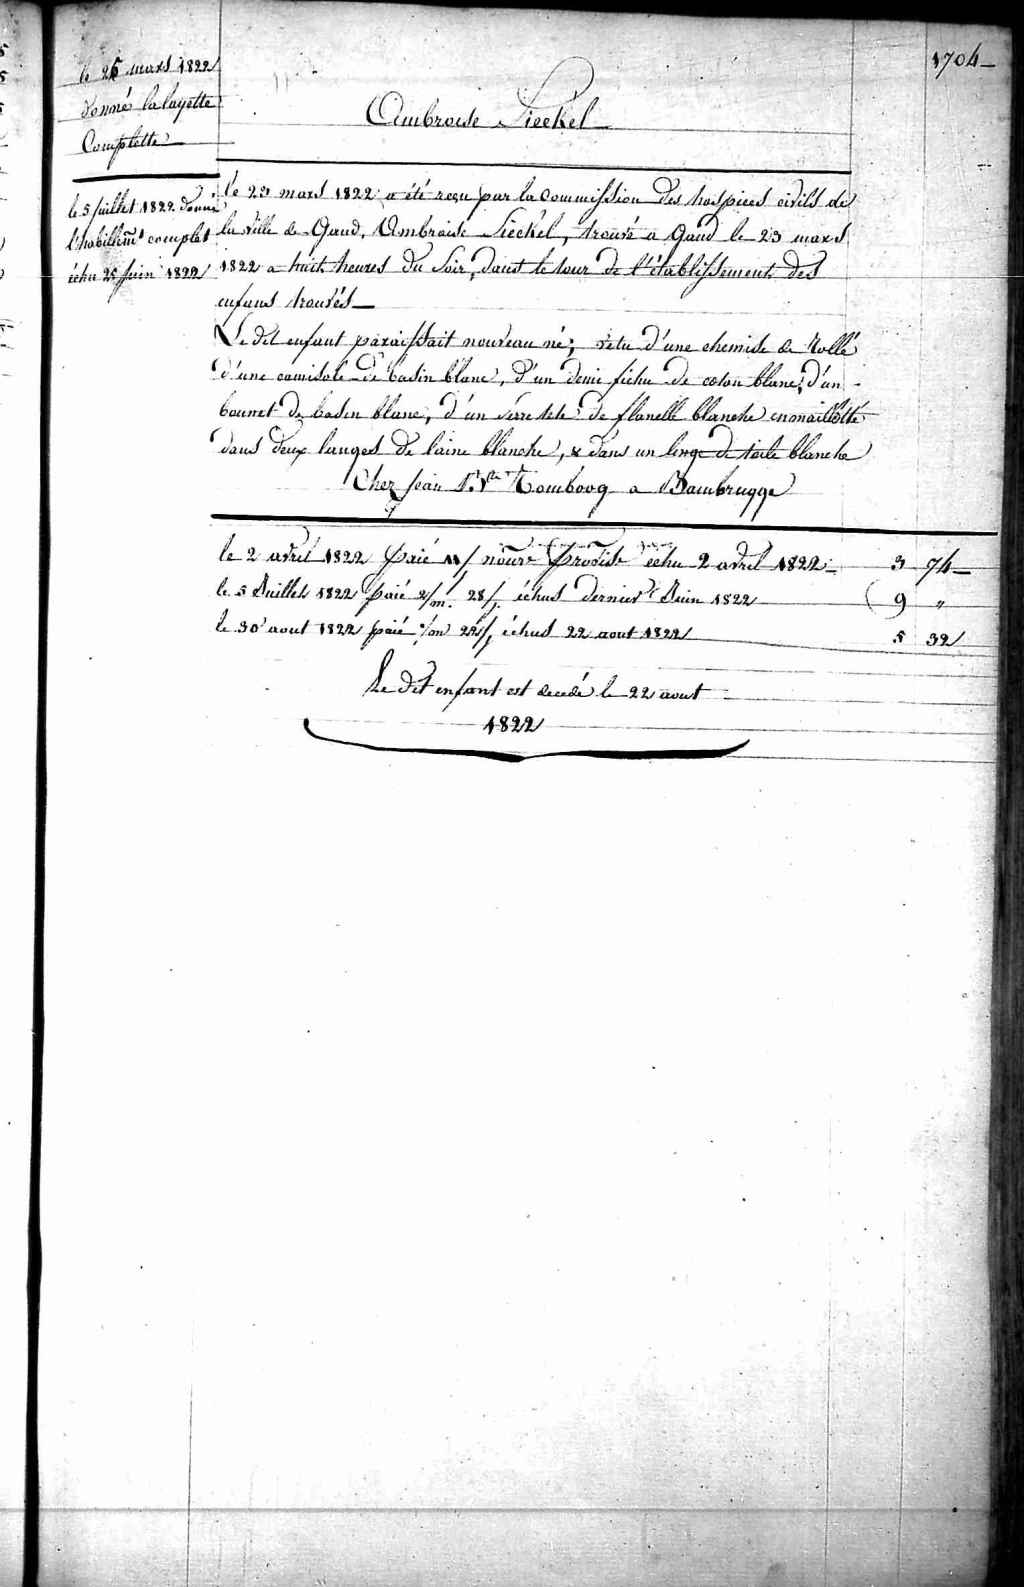 1704
le 25 mars 1822
donné la layette
Complette
Ambroise Sieckel
le 5 juillet 1822 donné
l'habillemt complet
échu 25 juin 1822
le 23 mars 1822 a été reçu par la commission des hospices civils de
la ville de Gand, Ambroise Sieckel, trouvé a Gand le 23 mars
1822 a huit heures du soir, dans le tour de l'établissement des
enfans trouvés
Le dit enfant paraissait nouveau né; vetu d'une chemise de
d'une camisole de basin blanc, d'un demi fichu de coton blanc, d'un
bonnet de basin blanc, d'un serre tete de flanelle blanche enmaillotté
dans deux langes de laine blanche, & dans un linge de toile blanche
Chez Jean a Bambrugge
le 2 avril 1822 paié 11/ nourre échu 2 avril 1822 3 74
le 5 Juillet 1822 paié 2/m. 28/j. échus dernier Juin 1822 9 "
le 30 aout 1822 paié 1/m 22/j échus 22 aout 1822 5 32
Le dit enfant est decedé le 22 aout
1822